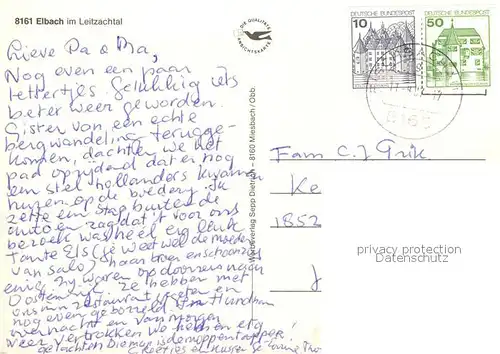 8161 Elbach im Leitzachtal
DIE QUALITÄTS
ANSICHTSKARTE
DEUTSCHE BUNDESPOST
10
DEUTSCHE BUNDESPOST
50
Lieve Pa & Ma,
Nog even een paar
lettertjes. Gelukkig iets
beter weer geworden.
Gister van een echte
bergwandeling terugge-
komen, dachten we het
pad oprijdend dat er nog
een stel hollanders kwamen
huren op de boerderij. Ik
zette een stap buiten de
auto en zag dat 't voor ons
bezoek was heel erg leuk
Tante Els (je weet wel de moeder
van Sako) haar broer en schoonzus
enig. Zij waren op doorreis naar
Oostenrijk. Ze hebben met
ons in 't restaurant gegeten en
nog even geborreld. In
overnacht en van morgen
weer vertrokken. We hebben erg
gelachten
Groetjes en kussen
Verlag Sepp Dietrich - 8160 Miesbach / Obb.
8165
Fam C.J. Grik
Ke
1852
privacy protection
Datenschutz